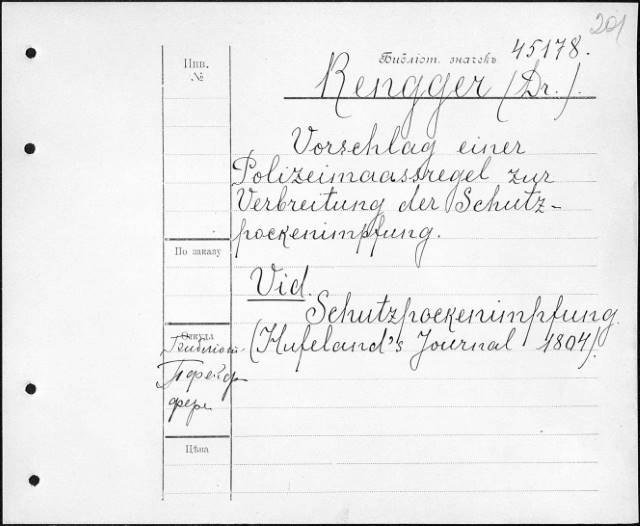 201
Инв.
№
Библіот. значекъ 45178.
Rengger (Dr.).
Vorschlag einer
Polizeimaassregel zur
Verbreitung der Schutz-
pockenimpfung.
По заказу
Vid.
Schutzpockenimpfung.
(Hufeland's Journal 1804).
Откуда
Библіот.
Цѣна